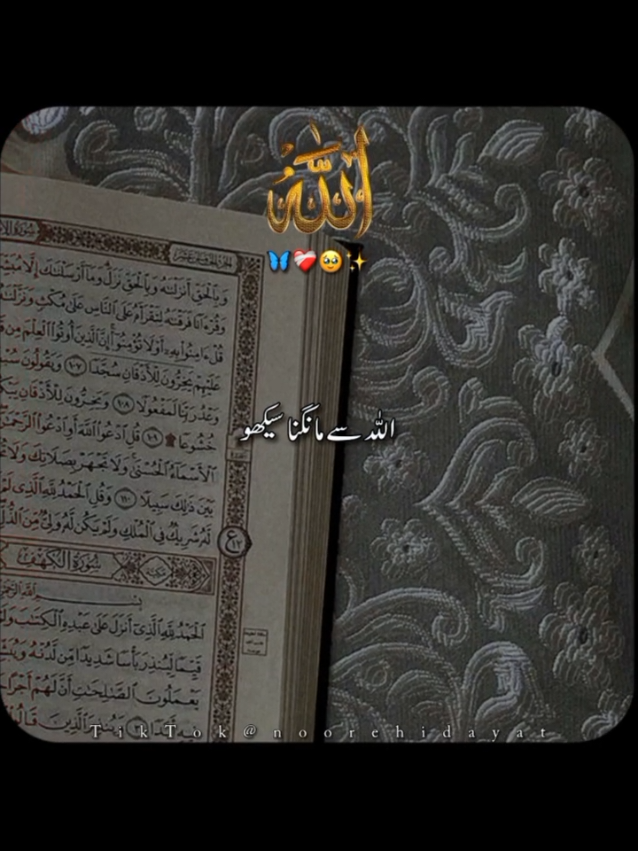 الله
🦋❤️‍🩹🥹✨
وَبِالْحَقِّ أَنزَلْنَاهُ وَبِالْحَقِّ نَزَلَ وَمَا أَرْسَلْنَاكَ إِلَّا
وَقُرْءَانًا فَرَقْنَاهُ لِتَقْرَأَهُ عَلَى النَّاسِ عَلَى مُكْثٍ وَنَزَّلْنَاهُ
قُلْ ءَامِنُوا بِهِ أَوْ لَا تُؤْمِنُوا إِنَّ الَّذِينَ أُوتُوا الْعِلْمَ مِن
عَلَيْهِمْ يَخِرُّونَ لِلْأَذْقَانِ سُجَّدًا ١٠٧ وَيَقُولُونَ
وَعْدُ رَبِّنَا لَمَفْعُولًا ١٠٨ وَيَخِرُّونَ لِلْأَذْقَانِ
خُشُوعًا ١٠٩ قُلِ ادْعُوا اللَّهَ أَوِ ادْعُوا الرَّحْمَٰنَ
الله سے مانگنا سیکھو
الْأَسْمَاءُ الْحُسْنَىٰ وَلَا تَجْهَرْ بِصَلَاتِكَ وَلَا
بَيْنَ ذَٰلِكَ سَبِيلًا ١١٠ وَقُلِ الْحَمْدُ لِلَّهِ الَّذِي
لَّهُ شَرِيكٌ فِي الْمُلْكِ وَلَمْ يَكُن لَّهُ وَلِيٌّ مِّنَ الذُّلِّ
سُورَةُ الْكَهْفِ
الْحَمْدُ لِلَّهِ الَّذِي أَنزَلَ عَلَىٰ عَبْدِهِ الْكِتَابَ
قَيِّمًا لِّيُنذِرَ بَأْسًا شَدِيدًا مِّن لَّدُنْهُ
يَعْمَلُونَ الصَّالِحَاتِ أَنَّ لَهُمْ أَجْرًا
TikTok@noorehidayat